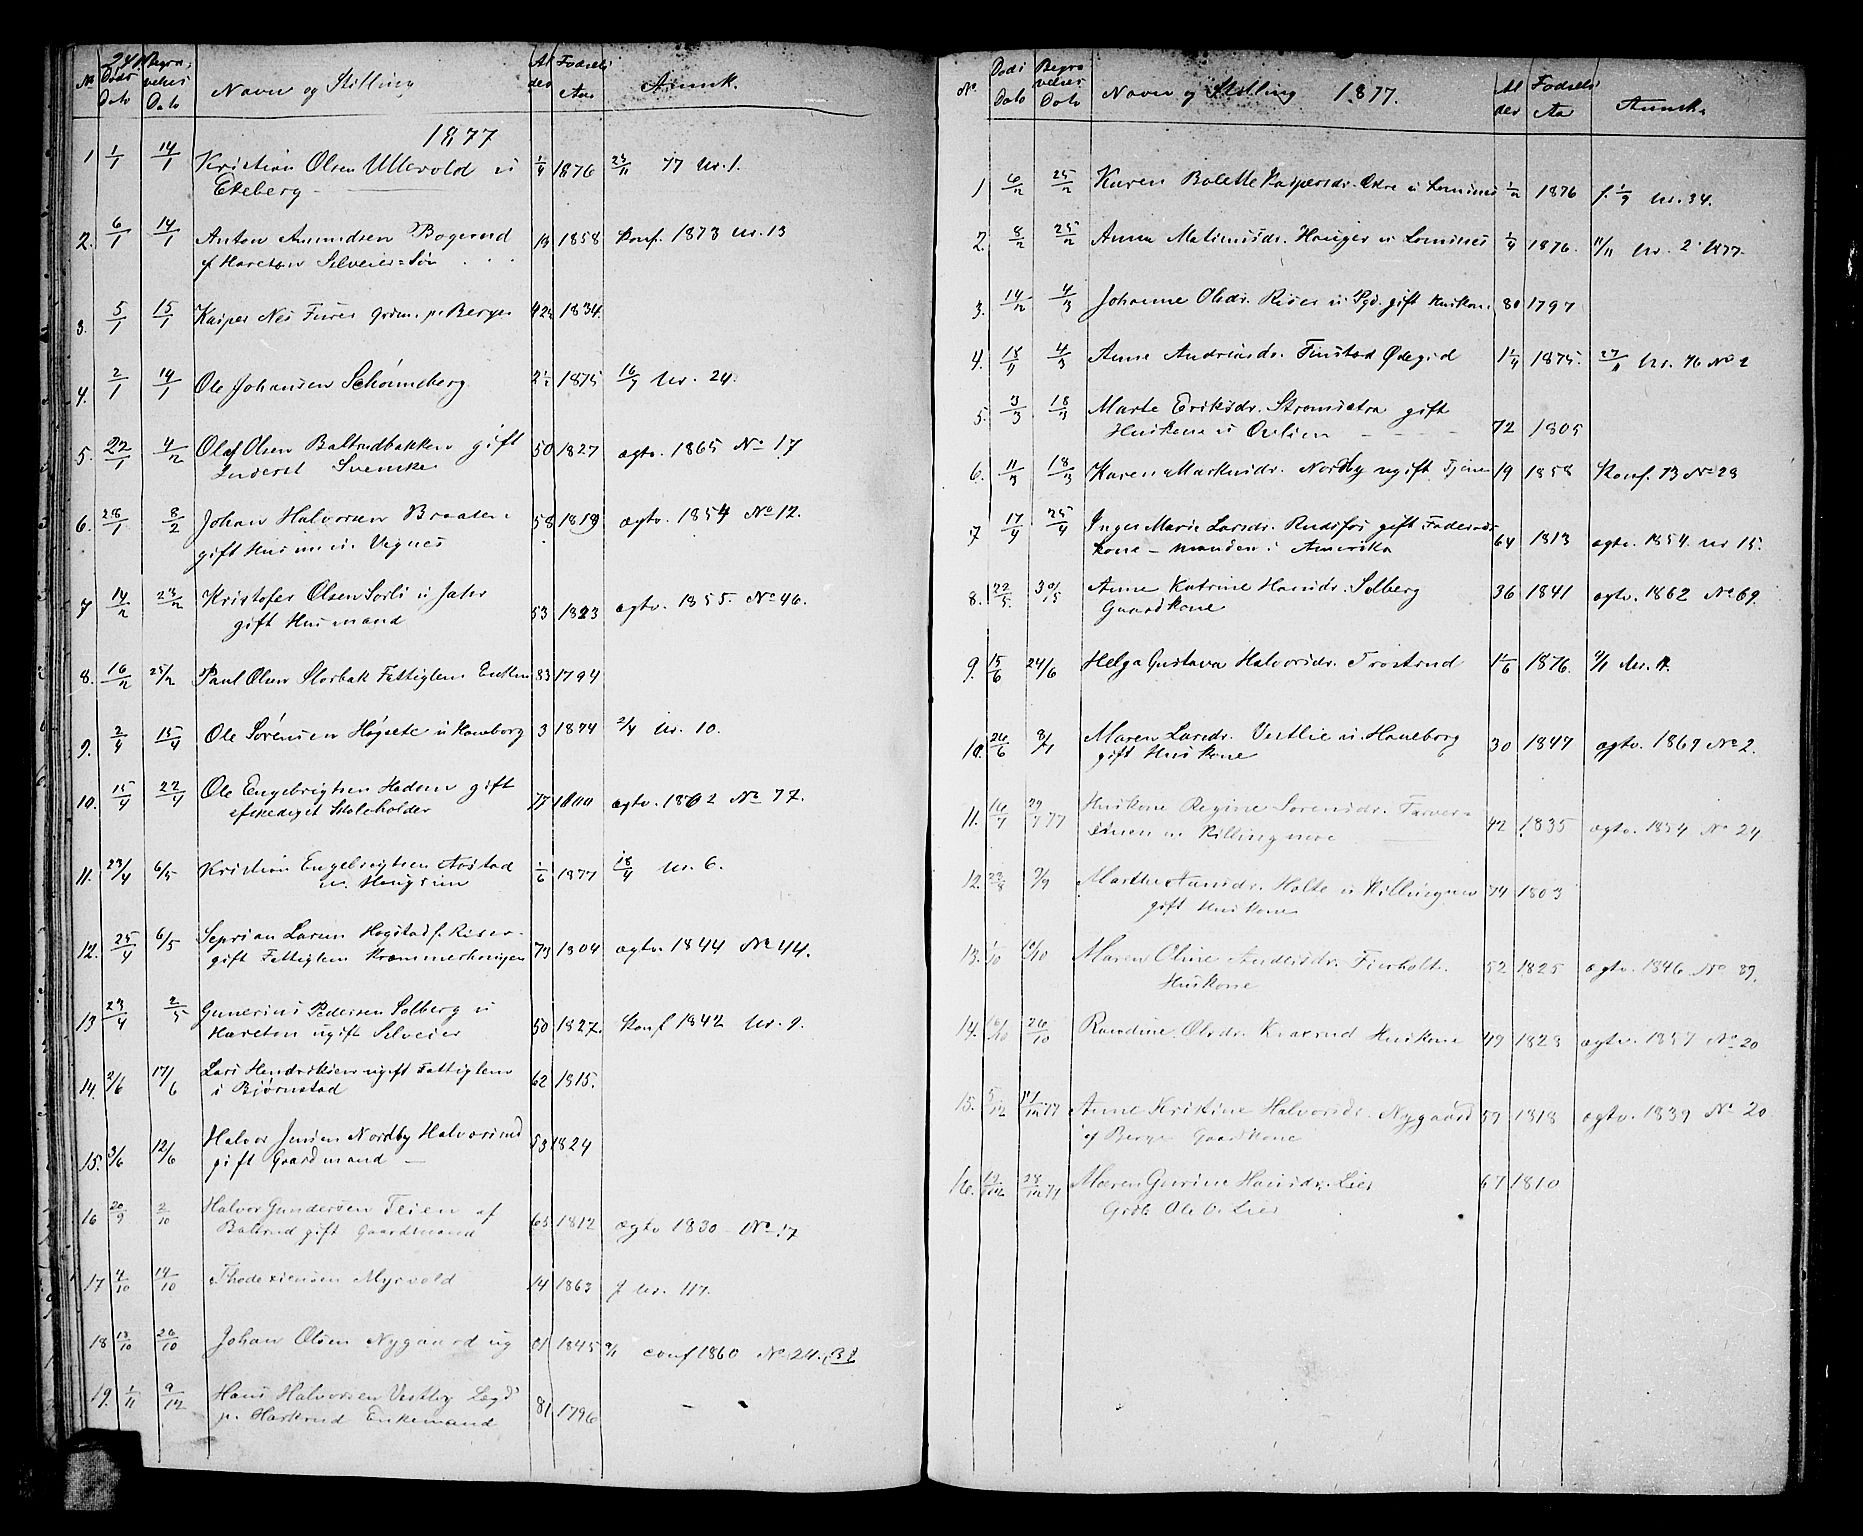 248
No Døds Dato Begra- velses Dato Navn og Stilling Al der Fødsels Aar Anmk.
1877
1 1/1 14/1 Kristian Olsen Ullevold u 1/4 1876 23/11 77 Nr. 1.
Ekeberg
2. 6/1 14/1 Anton Amundsen Bogerud 19 1858 Konf. 1873 Nr. 13
af Hareton Selveier-Søn
3. 5/1 15/1 Kasper Nes Furer Grdm. p. Berger 42½ 1834.
4. 2/1 14/1 Ole Johansen Schønneberg 2½ 1875 16/7 Nr. 24.
5. 22/1 4/2 Olaf Olsen Baltrudbakken gift 50 1827 ægtv. 1865 No 17
Inderst Svenske
6. 28/1 8/2 Johan Halvorsen Braaten 58 1819 ægtv. 1854 No 12.
gift Husm. u. Vignes
7 14/2 23/2 Kristofer Olsen Sørli u Jahr 53 1823 ægtv. 1855. No 46.
gift Husmand
8. 16/2 25/2 Paul Olsen Storbak Fattiglem Enkem 83 1794
9. 2/4 15/4 Ole Sørensen Høgsete u Haneborg 3 1874 2/4 Nr. 10.
10. 15/4 22/4 Ole Engebrigtsen Hadem gift 77 1800 ægtv. 1862 No 77.
afskediget Skoleholder
11. 23/4 6/5 Kristian Engebrigtsen Aastad 1/6 1877 18/4 Nr. 6.
u. Haugsrim
12. 25/4 6/5 Seprian Larsen Hogstad f. Riser 73 1804 ægtv. 1844 No 44.
gift Fattiglem
13 23/4 2/5 Gunerius Pedersen Solberg u 50 1827. Konf 1842 Nr. 9.
Hareton ugift Selveier
14. 2/6 17/6 Lars Hendriksen ugift Fattiglem 62 1815.
i Bjørnstad
15. 3/6 12/6 Halvor Jensen Nordby Halvorsrud 53 1824
gift Gaardmand
16 20/9 2/10 Halvor Gundersen Teien af 65 1812 ægtv 1830 No 17
Balsrud gift Gaardmand
17 4/10 14/10 Myrvold 14 1863 f Nr. 117.
18 13/10 26/10 Johan Olsen Nygaard ug 31 1845 9/1 conf 1860 No 24.
19. 1/11 9/12 Hans Halvorsen Vestby Lægd 81 1796
p. Haskrud Enkemand
No. Døds Dato Begra velses Dato Navn og Stilling 1877. Al der Fødsels Aa Anmk.
1 6/2 25/2 Karen Bolette Kaspersdr. Østre u Lominnes ½ 1876 f. 1/9 Nr. 34.
2. 8/2 25/2 Anna Matinusdr. Hauger u Lominnes 1/4 1876. 11/11 Nr. 2 1877.
3. 14/2 4/3 Johanne Olsdr. Riser u Pgd. gift Huskone 80 1797
4. 18/11 4/3 Anne Andreasdr. Finstad Ødegrd 1¼ 1875. 27/11 Nr. 76 No 2
5. 3/3 18/3 Marte Eriksdr. Strømsetra gift 72 1805
Huskone u Ovlien
6. 11/3 18/3 Karen Markusdr. Nordby ugift Tjener 19 1858 Konf. 73 No 23
7 17/4 25/4 Inger Marie Larsdr. Rudsfos gift Føderaads 64 1813 ægtv. 1854. nr 15.
kone – manden i Amerika
8. 22/5. 30/5 Anne Katrine Hansdr. Solberg 36 1841 ægtv. 1862 No 69.
Gaardkone
9. 15/6 24/6 Helga Gustava Halvorsdr. Trøstrud 1 1/6 1876.
10. 26/6 8/7 Maren Larsdr. Vestlie u. Haneborg 30 1847 ægtv. 1869 No 2.
gift Huskone
11. 16/7 29/7 77 Huskone Regine Sørensdr. 42 1835 ægtv. 1854 No 24
u Killingmoe
12. 23/8 2/9 Marthe Hansdr. Holte u Killingmo 74 1803
gift Huskone
13. 1/10 10/10 Maren Oline Andersdr. Fierholt. 52 1825 ægtv. 1846 No 89.
Huskone
14. 16/10 26/10 Randine Olsdr. Knarud Huskone 49 1828 ægtv. 1857 No 20
15. 5/12 11/12 77 Anne Kristine Halvorsdr. Nygaard 59 1818 ægtv. 1839 No 20
af Berge Gaardkone
16. 19/12 28/12 77 Maren Gurine Hansdr. Lier 67 1810
Grdb. Ole O. Lier